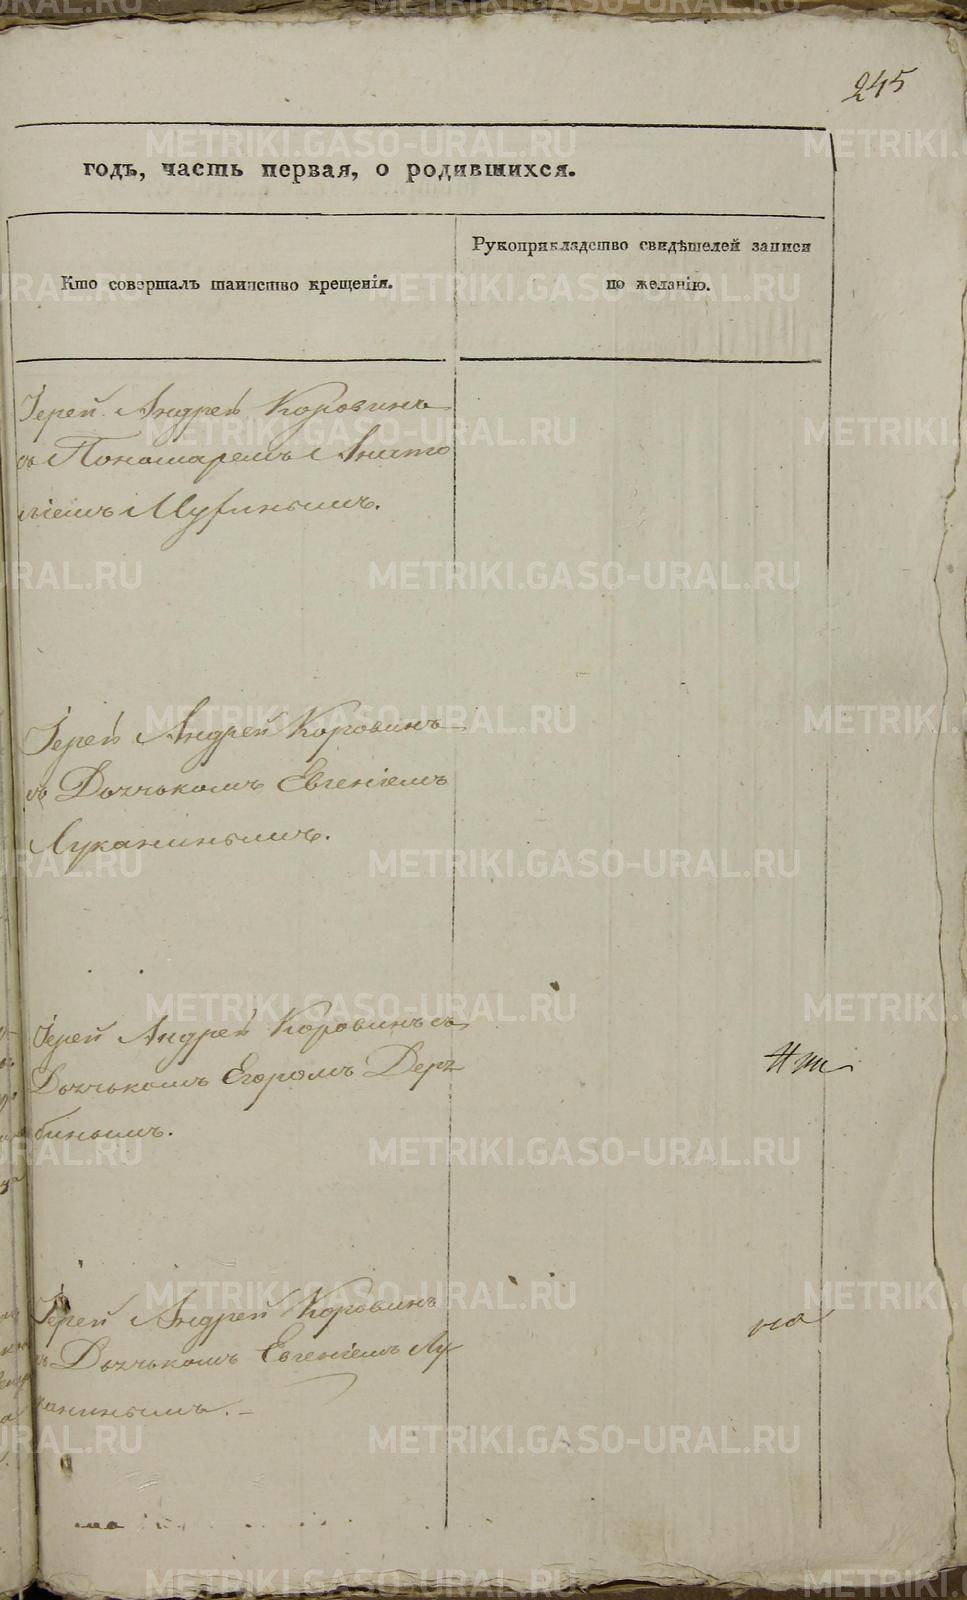 245
годъ, часть первая, о родившихся.
Кто совершалъ таинство крещенія.
Рукоприкладство свидѣтелей записи
по желанію.
Іерей Андрей Коровинъ
съ Пономаремъ Анато
ліемъ
Іерей Андрей Коровинъ
съ Дьячькомъ Евгеніемъ
Луканинымъ.
Іерей Андрей Коровинъ съ
Дьячькомъ Егоромъ Деря
бинымъ.
Іерей Андрей Коровинъ
съ Дьячькомъ Евгеніемъ Лу
канинымъ.
METRIKI.GASO-URAL.RU